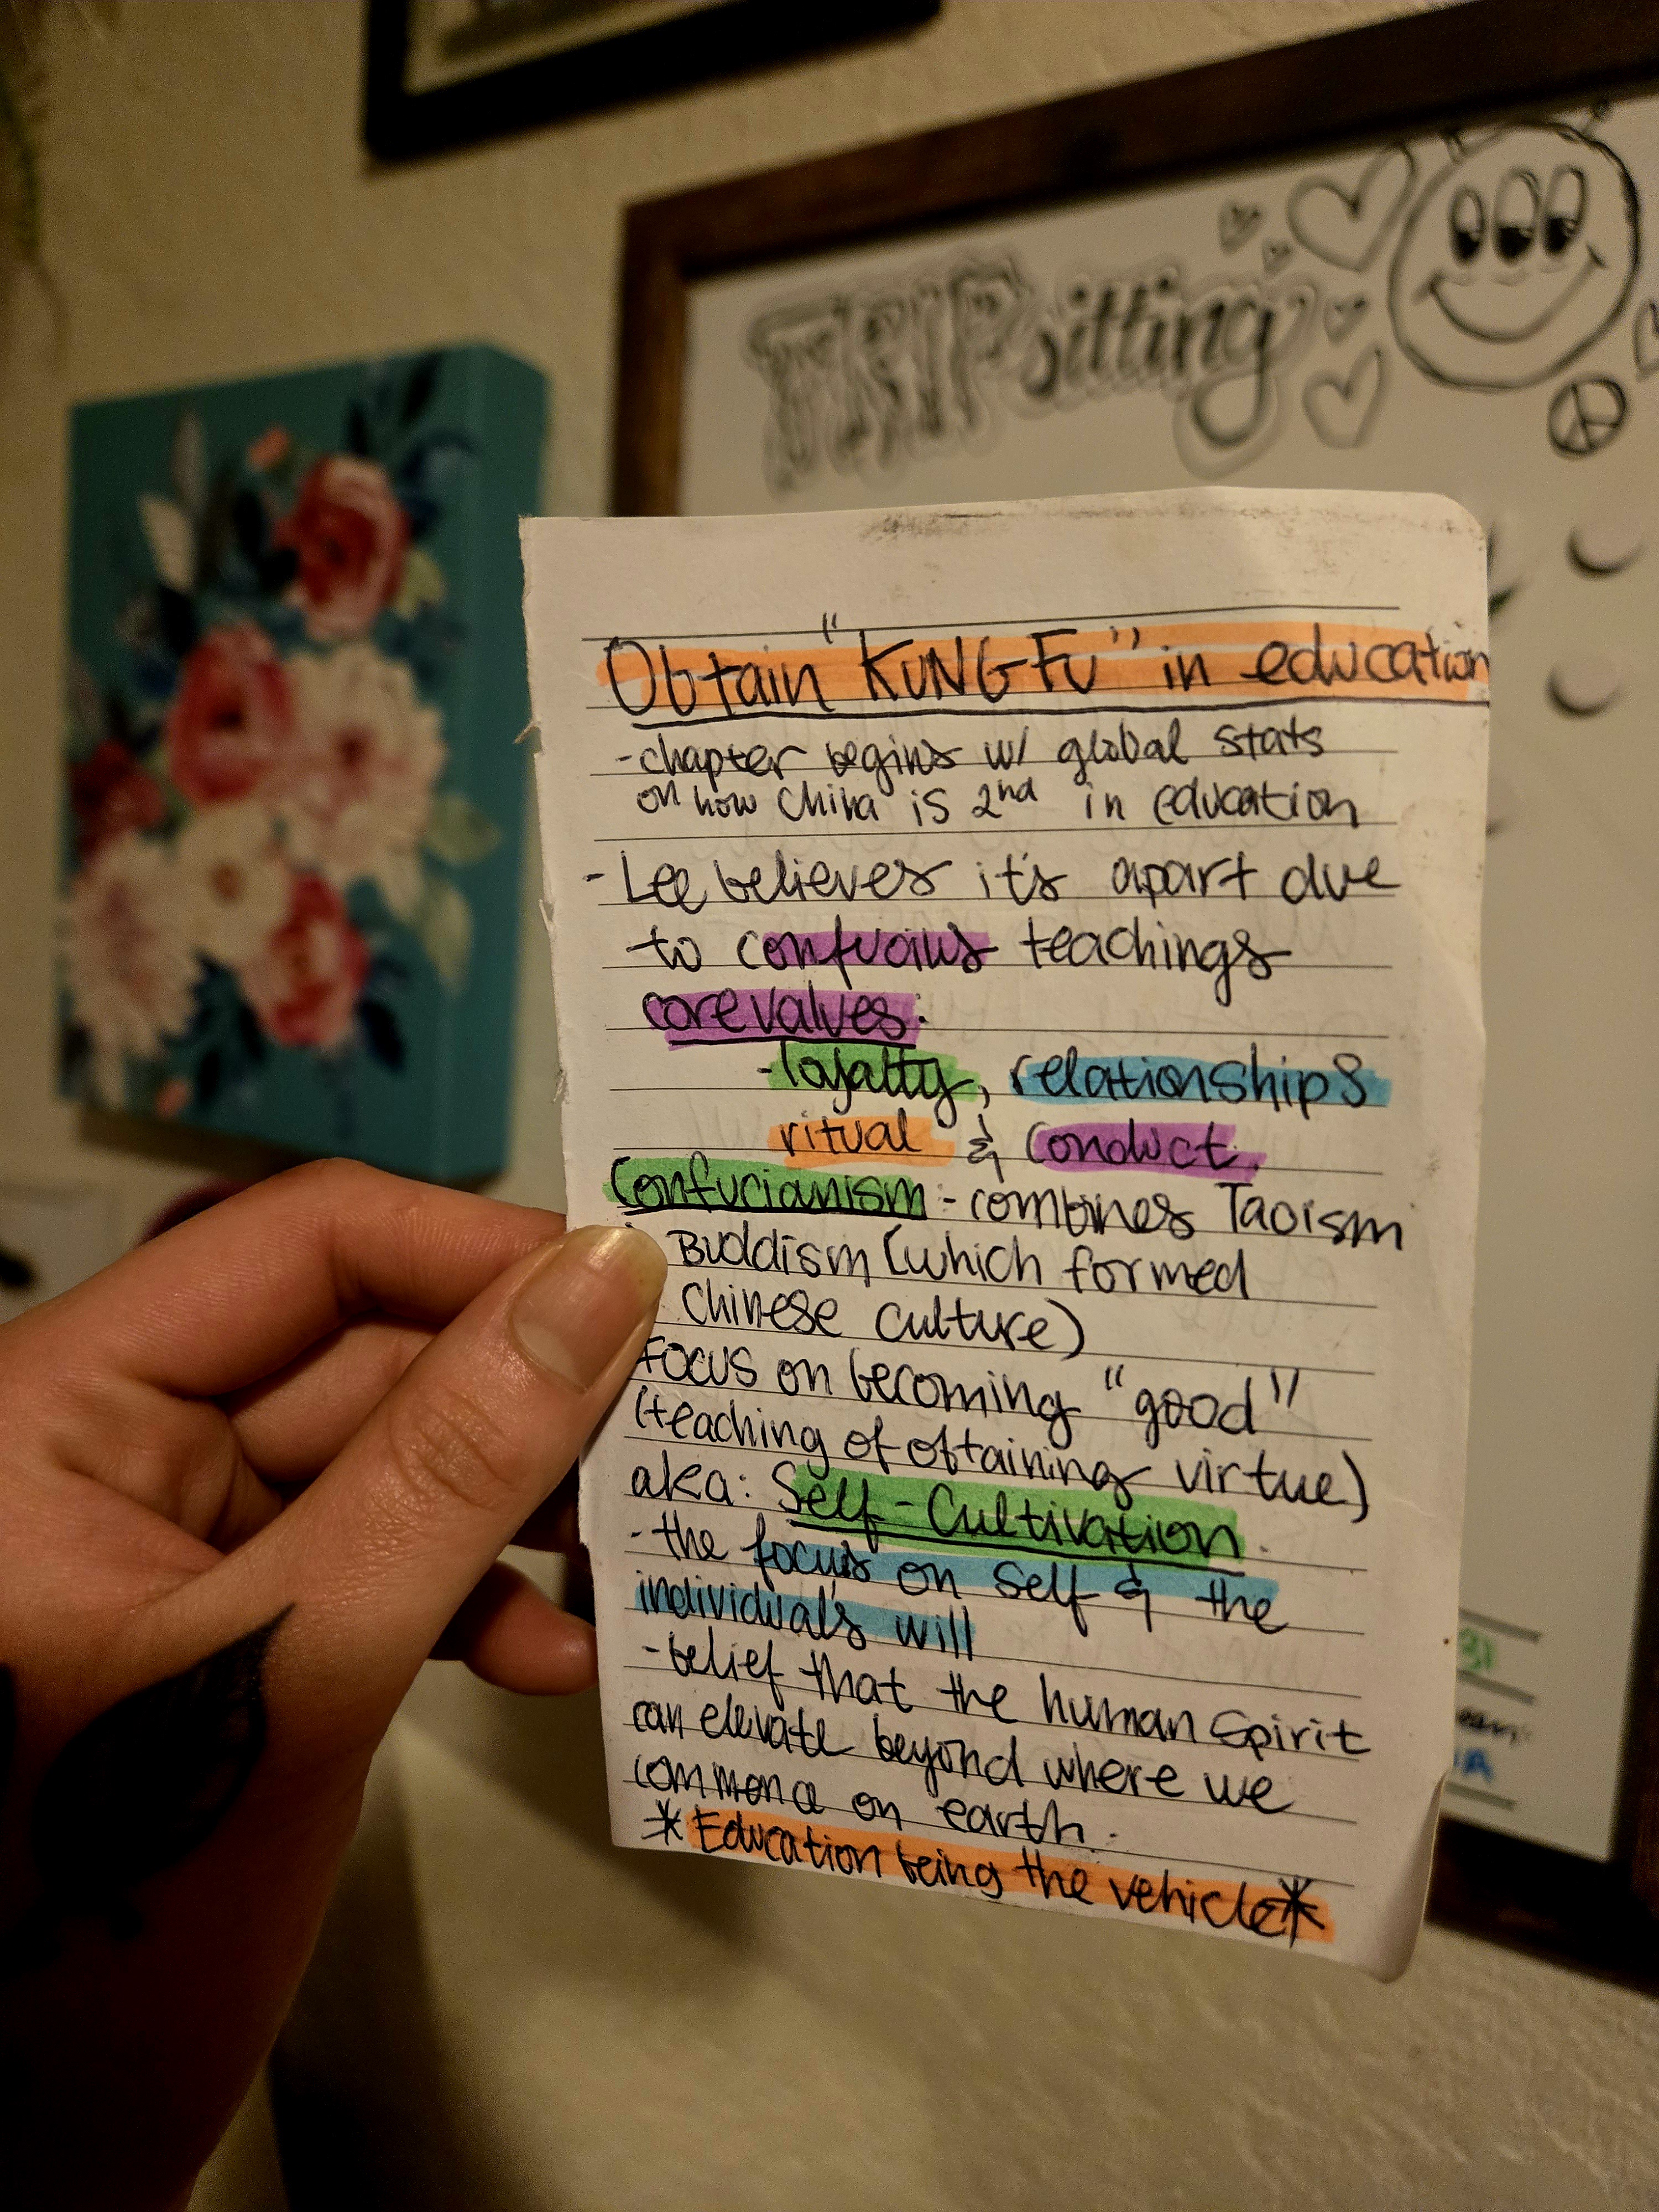 TRIPsitting
Obtain "KUNG FU" in education
-chapter begins w/ global stats
on how China is 2nd in education
- Lee believes it's apart due
to confucius teachings
core values:
-loyalty, relationships
ritual & conduct.
Confucianism:-combines Taoism
Buddism (which formed
Chinese culture)
Focus on becoming "good"
(teaching of obtaining virtue)
aka: Self-Cultivation.
-the focus on self & the
individual's will
-belief that the human spirit
can elevate beyond where we
commence on earth.
*Education being the vehicle*